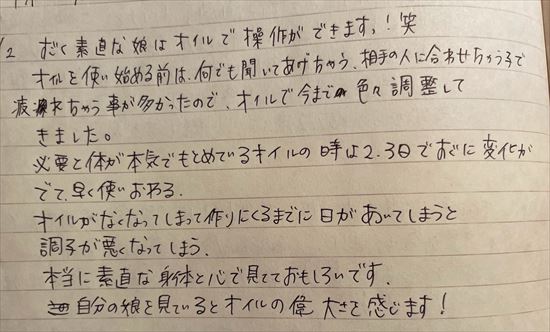 1/2 すごく素直な娘はオイルで操作ができます!笑
オイルを使い始める前は、何でも聞いてあげちゃう、相手の人に合わせちゃう子で
疲れちゃう事が多かったので、オイルで今まで色々調整して
きました。
必要と体が本気でもとめているオイルの時は2.3日ですぐに変化が
でて、早く使いおわる.
オイルがなくなってしまって作りにくるまでに日があいてしまうと
調子が悪くなってしまう.
本当に素直な身体と心で見てておもしろいです.
自分の娘を見ているとオイルの偉大さを感じます!